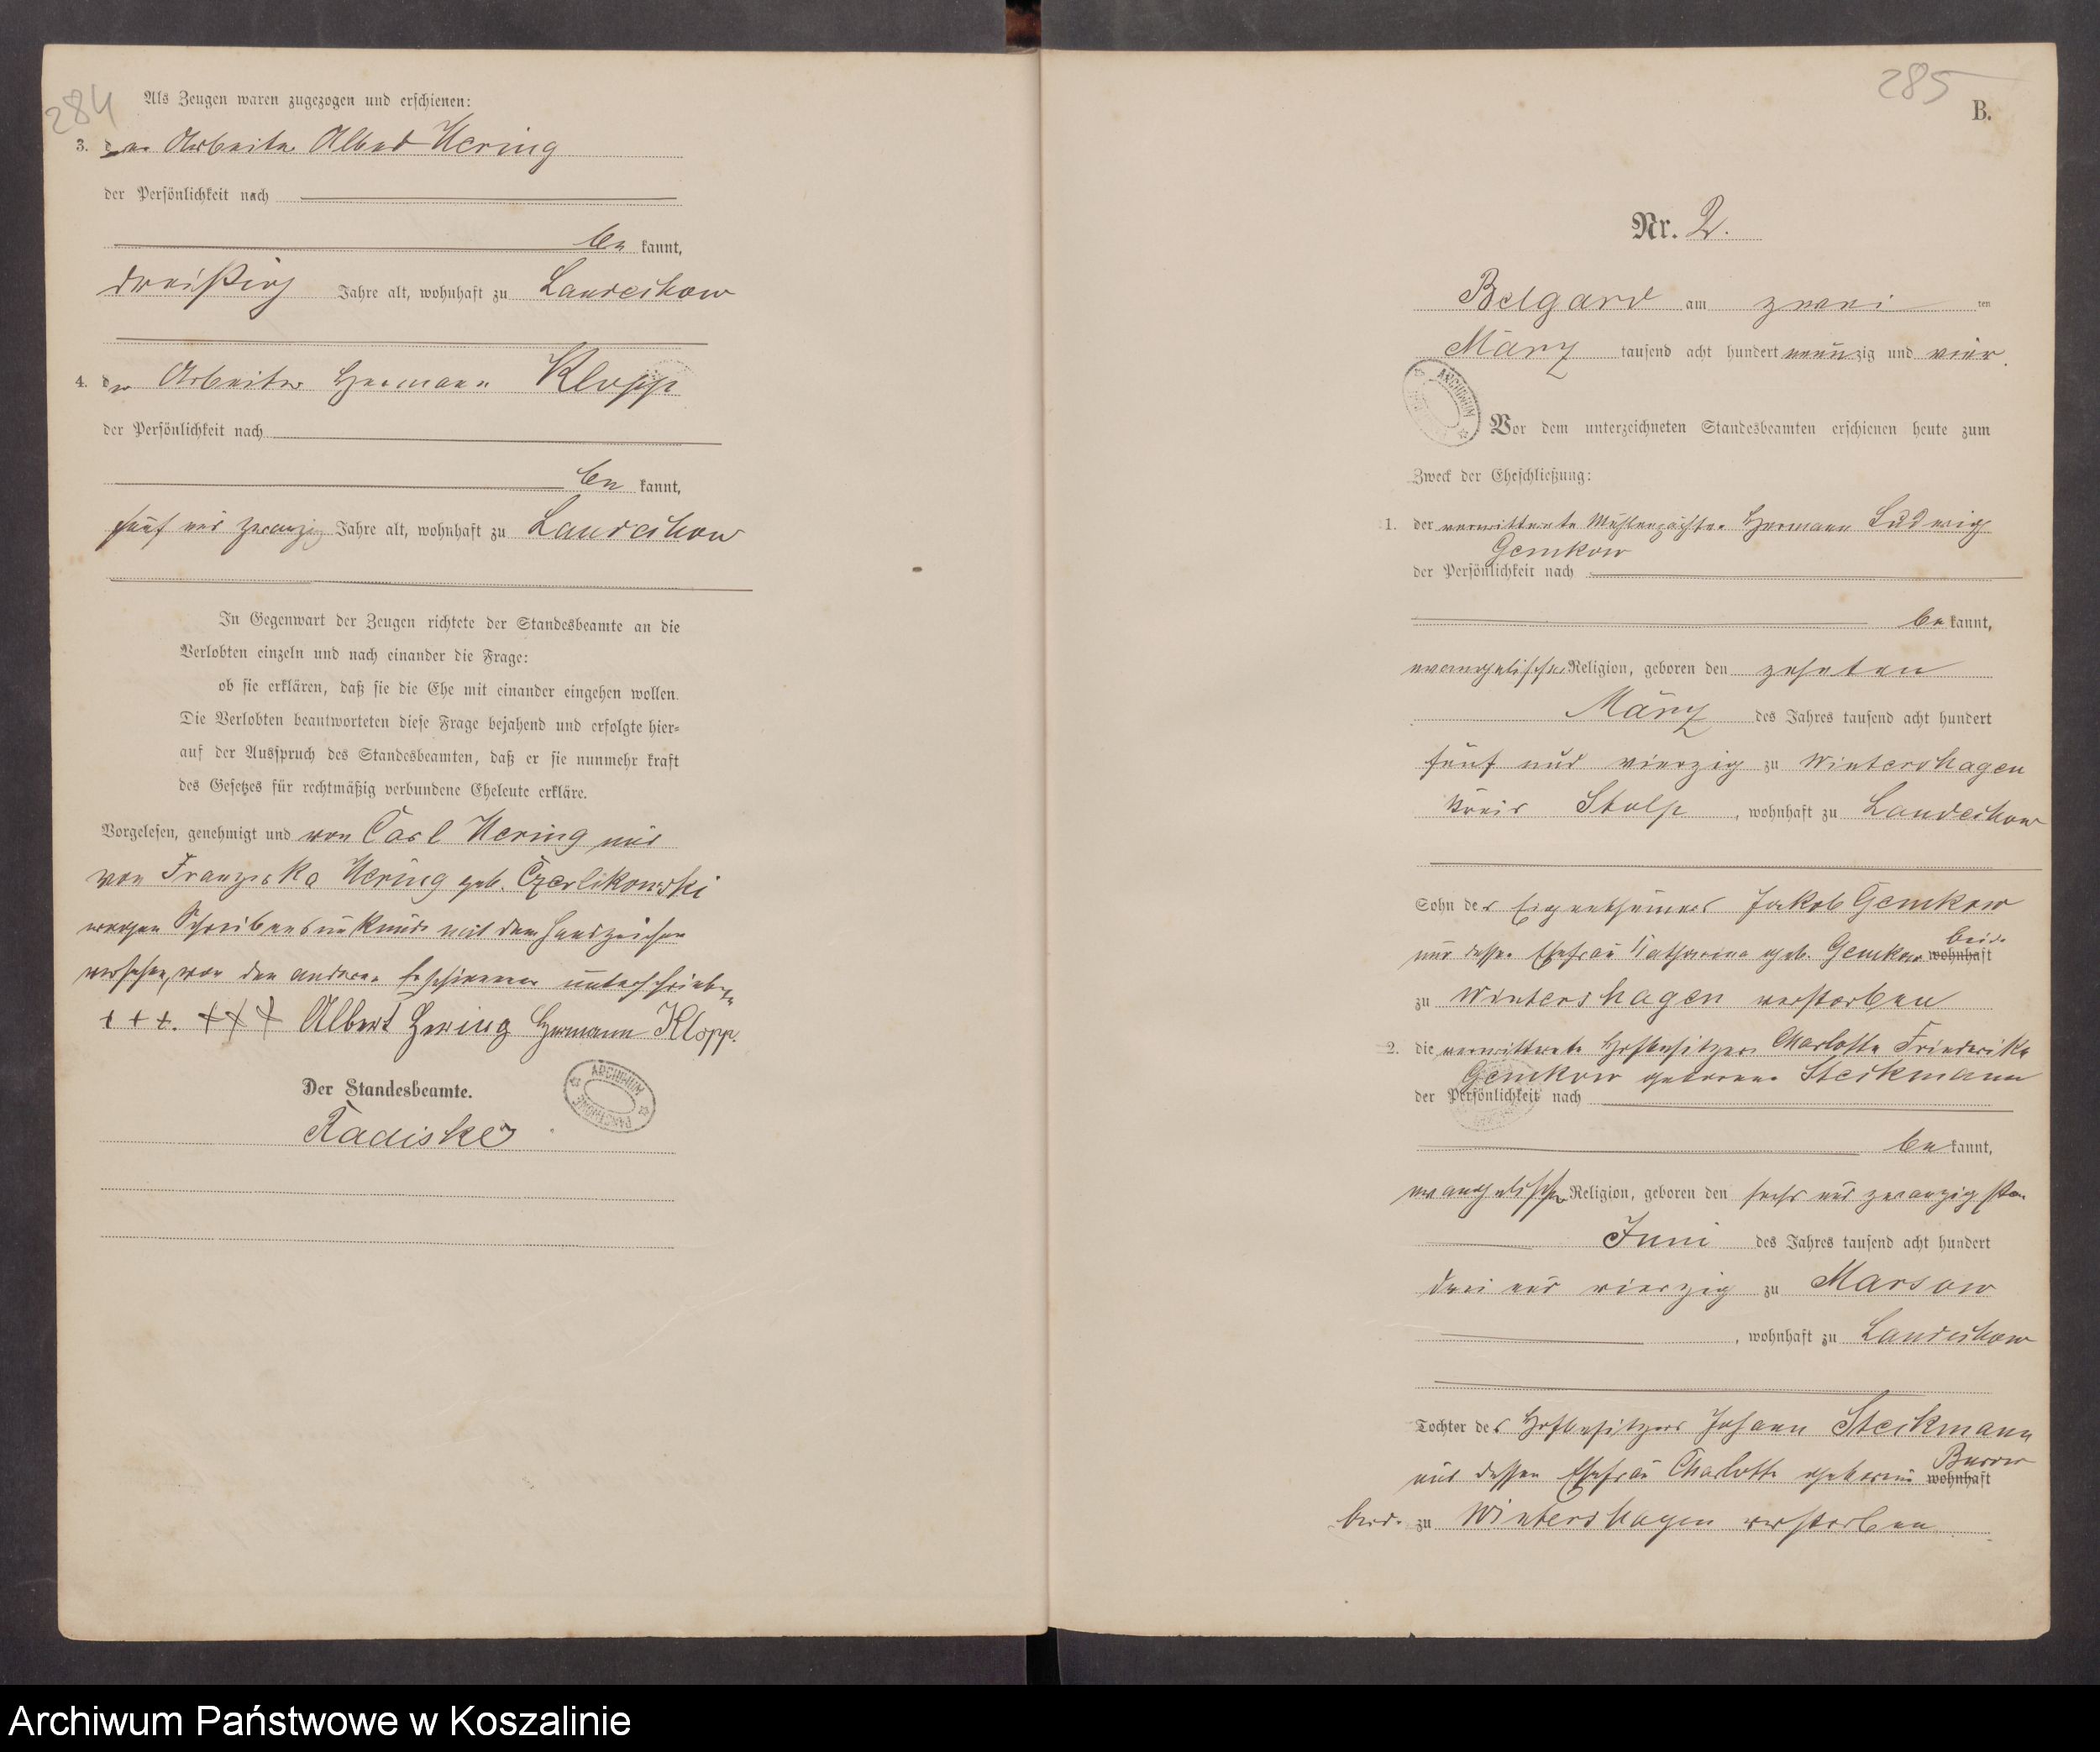 284
Als Zeugen waren zugezogen und erschienen:
3. der Arbeiter Albert Hering
der Persönlichkeit nach
be kannt,
dreißig Jahre alt, wohnhaft zu Landechow
4. der Arbeiter Hermann Klopp
der Persönlichkeit nach
be kannt,
fünf und zwanzig Jahre alt, wohnhaft zu Landechow
In Gegenwart der Zeugen richtete der Standesbeamte an die
Verlobten einzeln und nach einander die Frage:
ob sie erklären, daß sie die Ehe mit einander eingehen wollen.
Die Verlobten beantworteten diese Frage bejahend und erfolgte hier-
auf der Ausspruch des Standesbeamten, daß er sie nunmehr kraft
des Gesetzes für rechtmäßig verbundene Eheleute erkläre.
Vorgelesen, genehmigt und von Carl Hering und
von Franziska Hering geb. Czerlikowski
wegen Schreibensunkunde mit dem Handzeichen
versehen, von den anderen Erschienenen unterschrieben
+++. +++ Albert Hering Hermann Klopp.
Der Standesbeamte.
Radiske
ARCHIWUM PAŃSTWOWE
285
B.
Nr. 2.
Belgard am zwei ten
März tausend acht hundert neunzig und vier.
ARCHIWUM
Vor dem unterzeichneten Standesbeamten erschienen heute zum
Zweck der Eheschließung:
1. der verwittwete Mühlenpächter Hermann Ludwig
Gemkow
der Persönlichkeit nach
be kannt,
evangelischer Religion, geboren den zehnten
März des Jahres tausend acht hundert
fünf und vierzig zu Wintershagen
Kreis Stolp, wohnhaft zu Landechow
Sohn des Eigenthümers Jakob Gemkow
und dessen Ehefrau Katharina geb. Gemkow beide wohnhaft
zu Wintershagen verstorben
2. die verwittwete Hofbesitzer Charlotte Friederike
Gemkow geborene Steckmann
der Persönlichkeit nach
be kannt,
evangelischer Religion, geboren den sechs und zwanzigsten
Juni des Jahres tausend acht hundert
drei und vierzig zu Marsow
, wohnhaft zu Landechow
Tochter des Hofbesitzers Johann Steckmann
und dessen Ehefrau Charlotte geborene Burow wohnhaft
beide zu Wintershagen verstorben
Archiwum Państwowe w Koszalinie